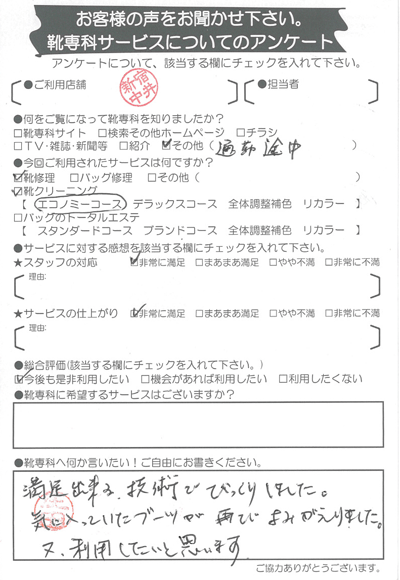 お客様の声をお聞かせ下さい。
靴専科サービスについてのアンケート
アンケートについて、該当する欄にチェックを入れて下さい。
●ご利用店舗 新宿中井 ●担当者
●何をご覧になって靴専科を知りましたか？
□靴専科サイト □検索その他ホームページ □チラシ
□TV・雑誌・新聞等 □紹介 ☑その他（ 通勤途中 ）
●今回ご利用されたサービスは何ですか？
☑靴修理 □バッグ修理 □その他（ ）
☑靴クリーニング
【 エコノミーコース デラックスコース 全体調整補色 リカラー 】
□バッグのトータルエステ
【 スタンダードコース ブランドコース 全体調整補色 リカラー 】
●サービスに対する感想を該当する欄にチェックを入れて下さい。
★スタッフの対応 ☑非常に満足 □まあまあ満足 □やや不満 □非常に不満
理由:
★サービスの仕上がり ☑非常に満足 □まあまあ満足 □やや不満 □非常に不満
理由:
●総合評価(該当する欄にチェックを入れて下さい。)
☑今後も是非利用したい □機会があれば利用したい □利用したくない
●靴専科に希望するサービスはございますか？
●靴専科へ何か言いたい！ご自由にお書きください。
満足出来る、技術でびっくりしました。
気に入っていたブーツが再びよみがえりました。
又、利用したいと思います
ご協力ありがとうございます。